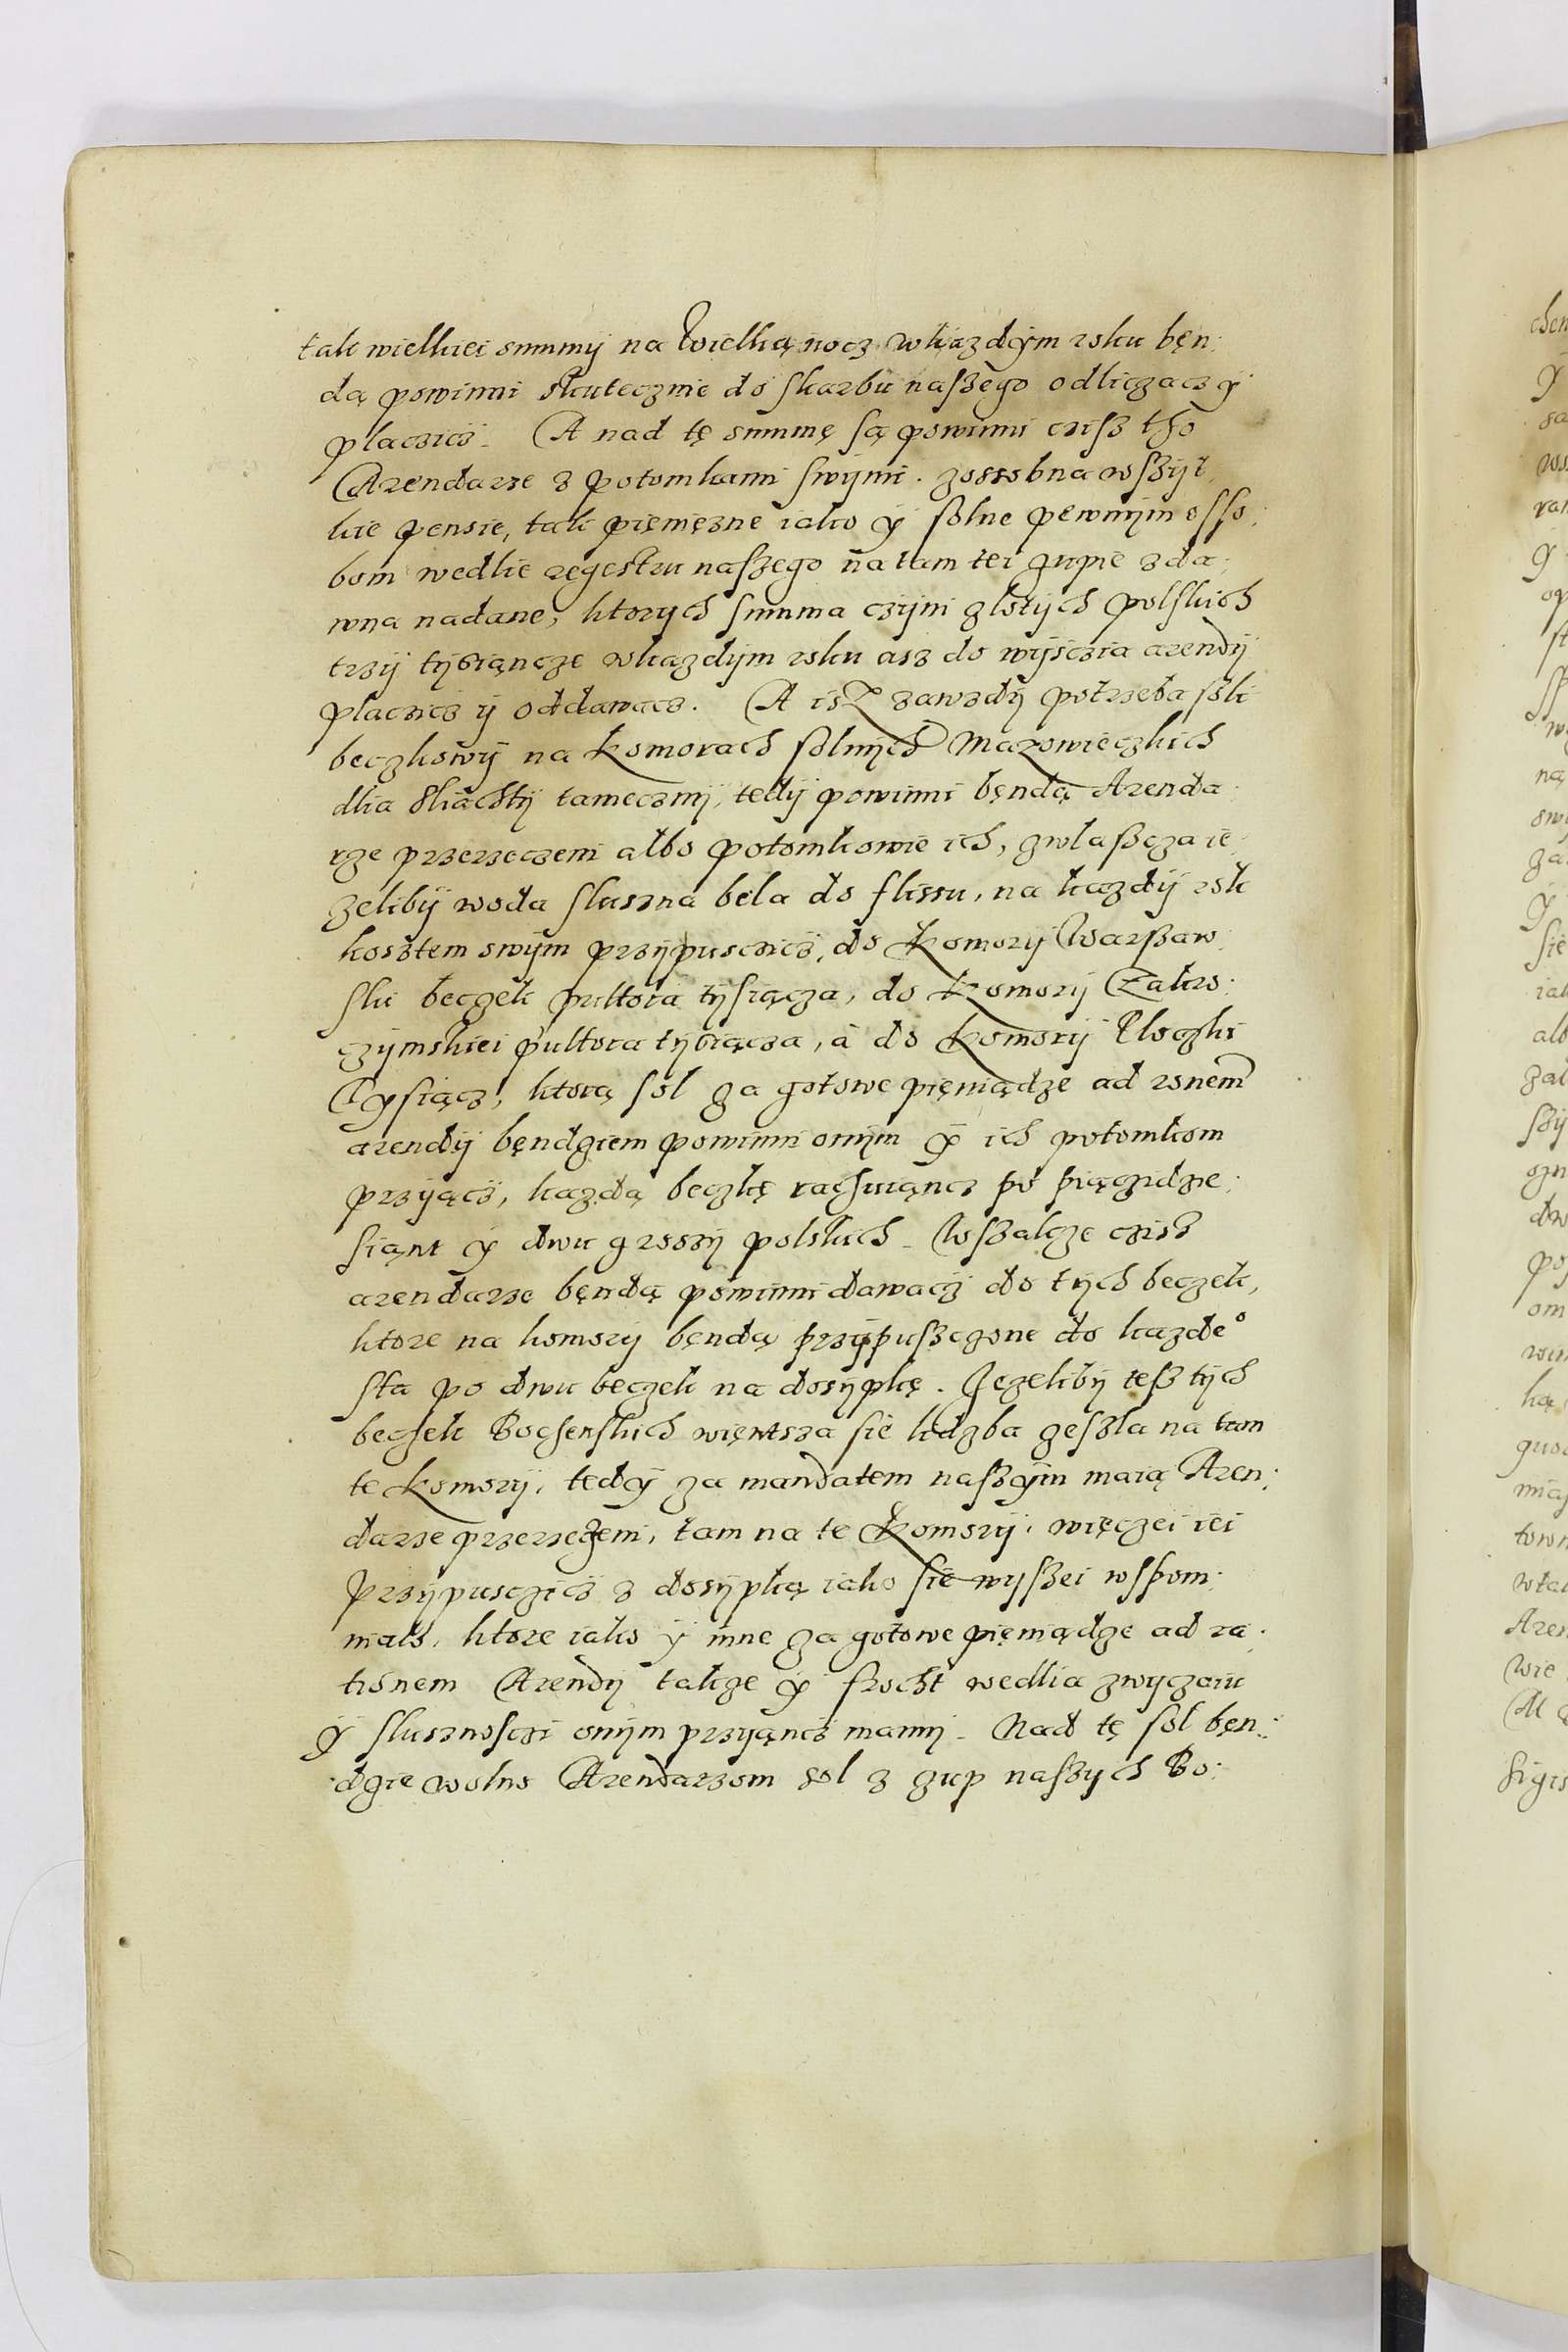 tak wielkiei summy na Wielkąnocz wkazdÿm roku bęn:
dą powinni skutecznie do skarbu naszego odliczacz ÿ
placzicz. A nad tę summę są powinni czisz tho
Arendarze z potomkami swÿmi. zossobna wszÿt:
kie pensie, tak pięniężne iako ÿ solne pewnÿm osso:
bom wedlie regestru naszego na tam tei zupie zda:
wna nadane, ktorych summa czÿni zlotÿch polskich
trzÿ tÿsiącze wkazdÿm roku asz do wÿsczia arendÿ
placzicz ÿ oddawacz. A isz zawzdÿ potrzeba soli
beczkowÿ na Komorach solnÿch Mazowieczkich
dlia sliachtÿ tamecznÿ, tedÿ powinni będą Arenda:
rze przerzeczeni albo potomkowie ich, zwlascza ie:
zelibÿ woda sluszna bela do flissu, na kazdÿ rok
kosztem swÿm przÿpusczicz, do Komorÿ Warszaw:
ski beczek pultora tÿsiącza, do Komorÿ Zakro:
czÿmskiei pultora tÿsiącza, a do Komorÿ Ploczki
Tÿsiącz, ktorą sol za gotowe pięniądze ad ronem
arendÿ bęndziem powinni onÿm ÿ ich potomkom
przÿącz, kazdą beczkę rachuiącz po pięczidzie:
siąnt ÿ dwu groszÿ polskich. Wszakze czisz
arendarze będą powinni dawacz do tÿch beczek,
ktore na komorÿ będą przÿpusczone do kazde°
sta po dwu beczek na dosÿpkę. Jezelibÿ tesz tÿch
beczek Bochenskich więntsza sie liczba zeszla na tam
te Komorÿ, tedÿ za mandatem naszÿm maią Aren:
darze przerzeczeni, tam na te Komorÿ, więczei iei
Przÿpusczicz z dosÿpką iako sie wyszei wspom:
nialo, ktore iako ÿ inne za gotowe pięniądze ad ra:
tionem Arendÿ takze ÿ frocht wedlia zwyczaiu
ÿ slusznosczi onÿm przÿącz mamÿ. Nad tę sol bęn:
dzie wolno Arendarzom sol z zup naszych Bo: